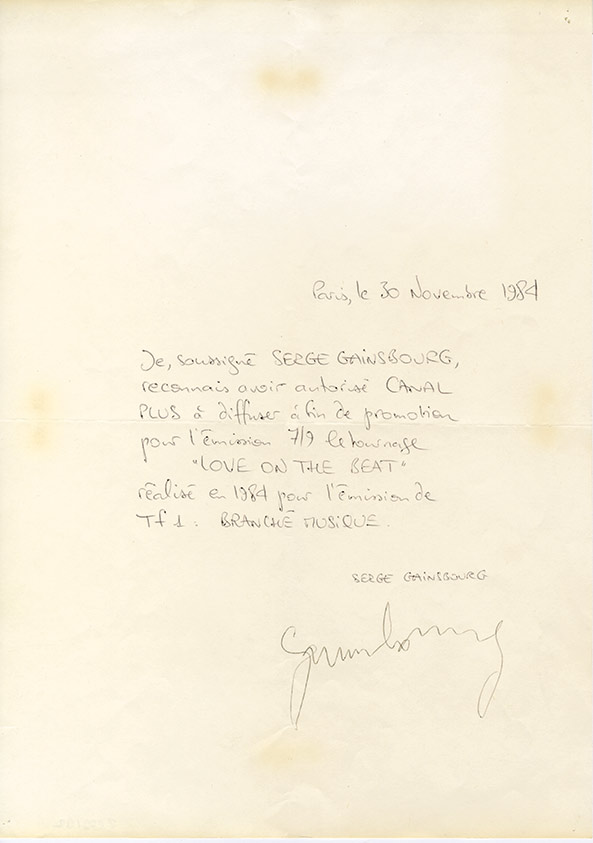 Paris, le 30 Novembre 1984
Je, soussigné SERGE GAINSBOURG,
reconnais avoir autorisé CANAL
PLUS à diffuser à fin de promotion
pour l'émission 7/9 le tournage
"LOVE ON THE BEAT"
réalisé en 1984 pour l'émission de
Tf 1 : BRANCHÉ MUSIQUE.
SERGE GAINSBOURG
Gainsbourg